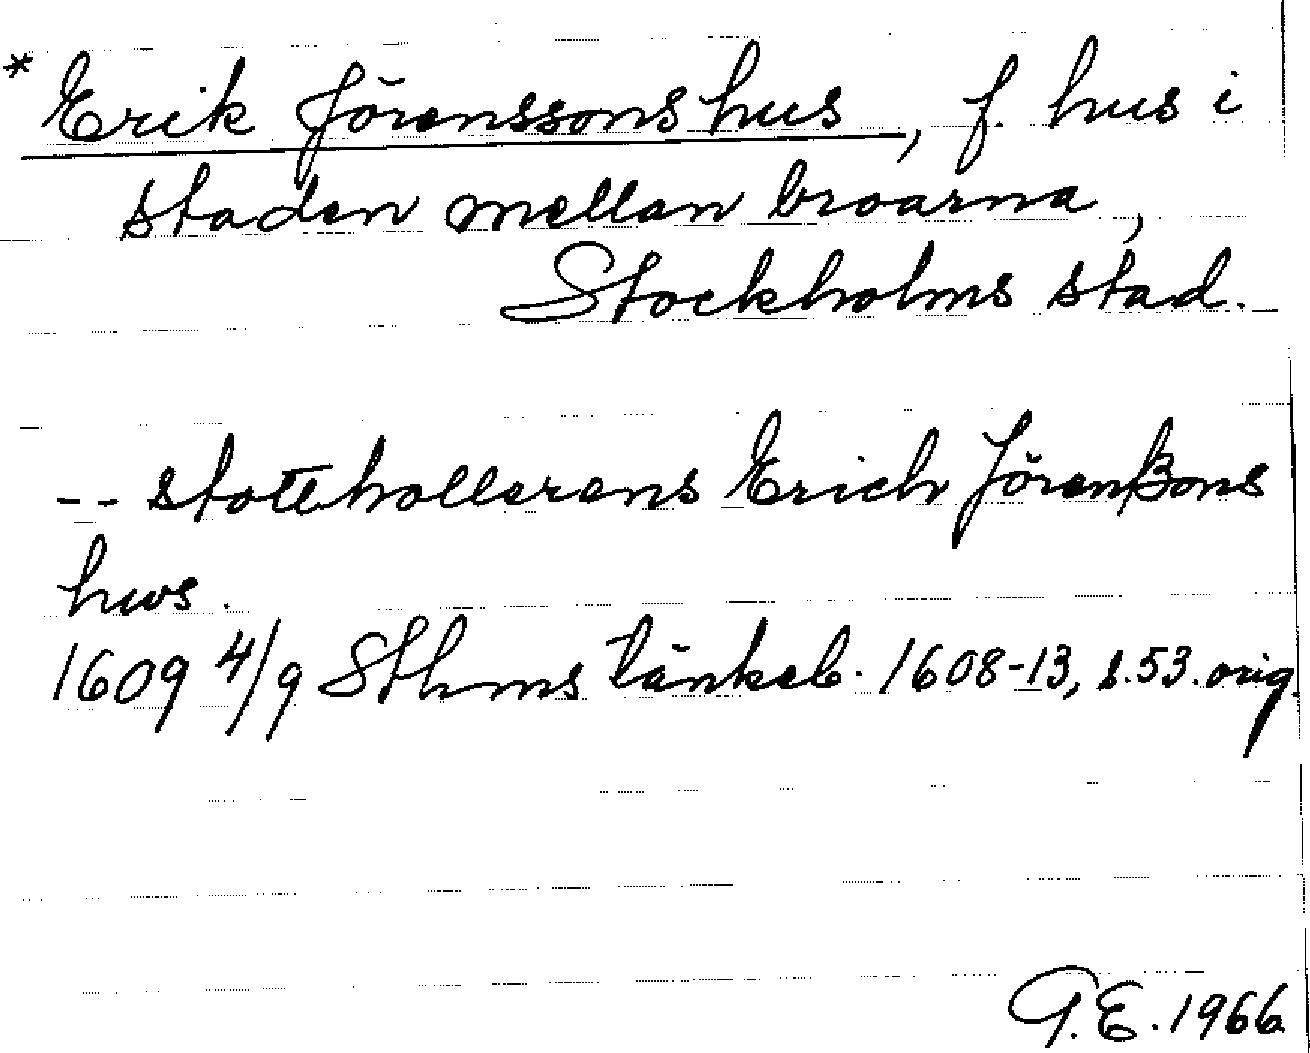 * Erik Jörenssons hus, f. hus i
staden mellan broarna,
Stockholms stad.
-- stottehollerens Erich Jörenßons
hws.
1609 4/9 Sthms tänkeb. 1608-13, s. 53. orig.
G.E. 1966